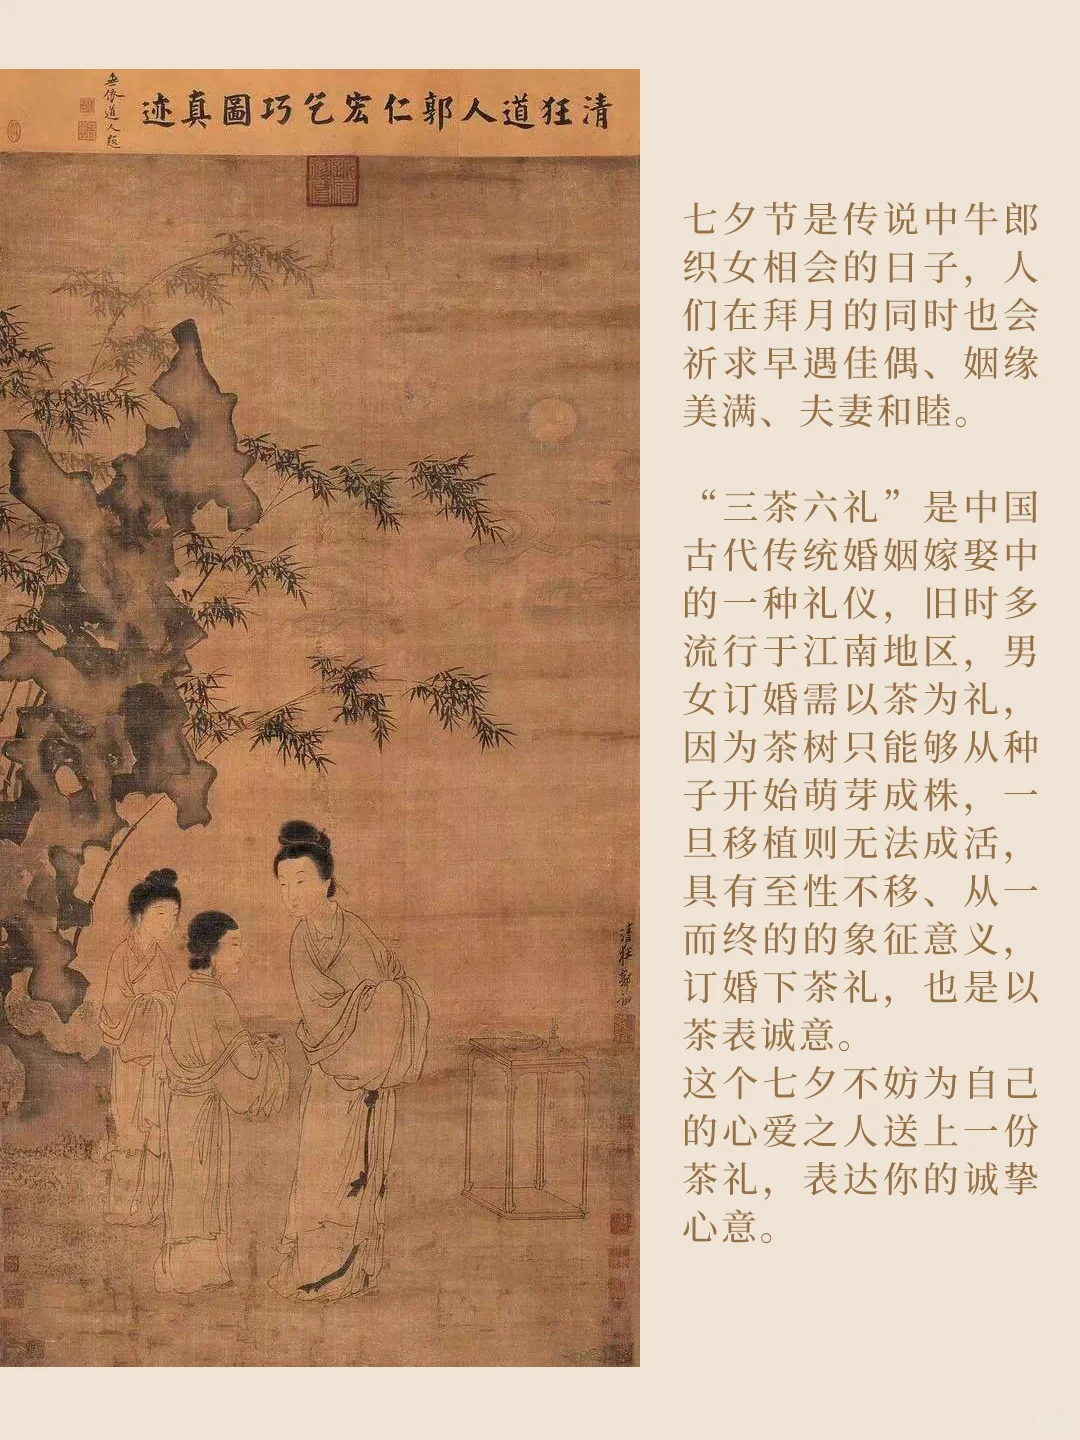 清狂道人郭仁宏乞巧圖真迹
無依道人題
清狂郭詡
七夕节是传说中牛郎
织女相会的日子，人
们在拜月的同时也会
祈求早遇佳偶、姻缘
美满、夫妻和睦。
“三茶六礼”是中国
古代传统婚姻嫁娶中
的一种礼仪，旧时多
流行于江南地区，男
女订婚需以茶为礼，
因为茶树只能够从种
子开始萌芽成株，一
旦移植则无法成活，
具有至性不移、从一
而终的的象征意义，
订婚下茶礼，也是以
茶表诚意。
这个七夕不妨为自己
的心爱之人送上一份
茶礼，表达你的诚挚
心意。